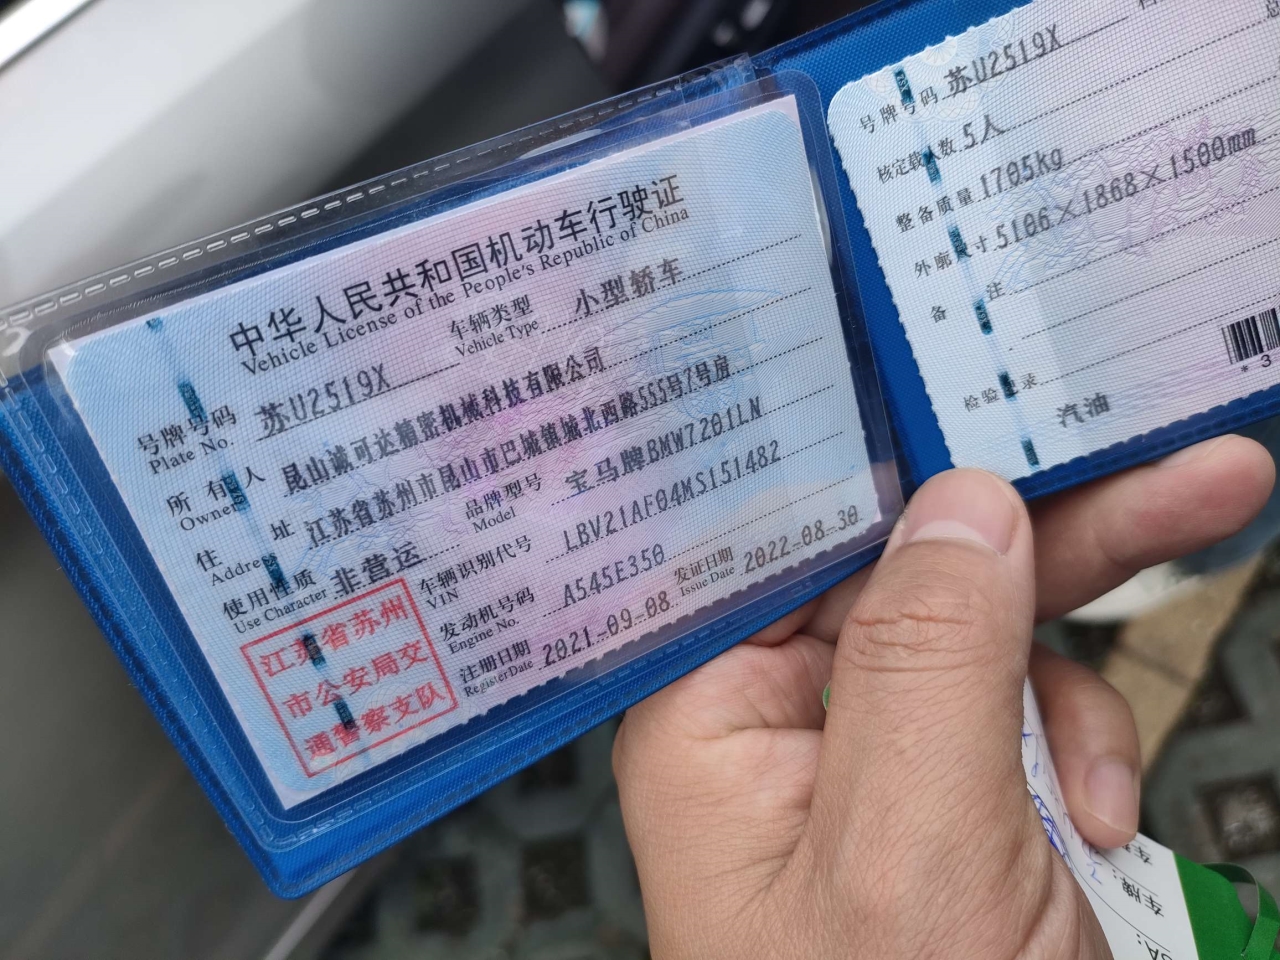 中华人民共和国机动车行驶证
Vehicle License of the People's Republic of China
号牌号码 苏U2519X 车辆类型 小型轿车
Plate No. Vehicle Type
所有人 昆山诚可达精密机械科技有限公司
Owner
住址 江苏省苏州市昆山市巴城镇城北西路555号7号房
Address
使用性质 非营运 品牌型号 宝马牌BMW7201LN
Use Character Model
车辆识别代号 LBV21AF04MS151482
VIN
发动机号码 A545E350
Engine No.
注册日期 2021-09-08 发证日期 2022-08-30
Register Date Issue Date
江苏省苏州
市公安局交
通警察支队
号牌号码 苏U2519X
核定载人数 5人
整备质量 1705kg
外廓尺寸 5106×1868×1500mm
备注
* 3
检验记录
汽油
车牌: